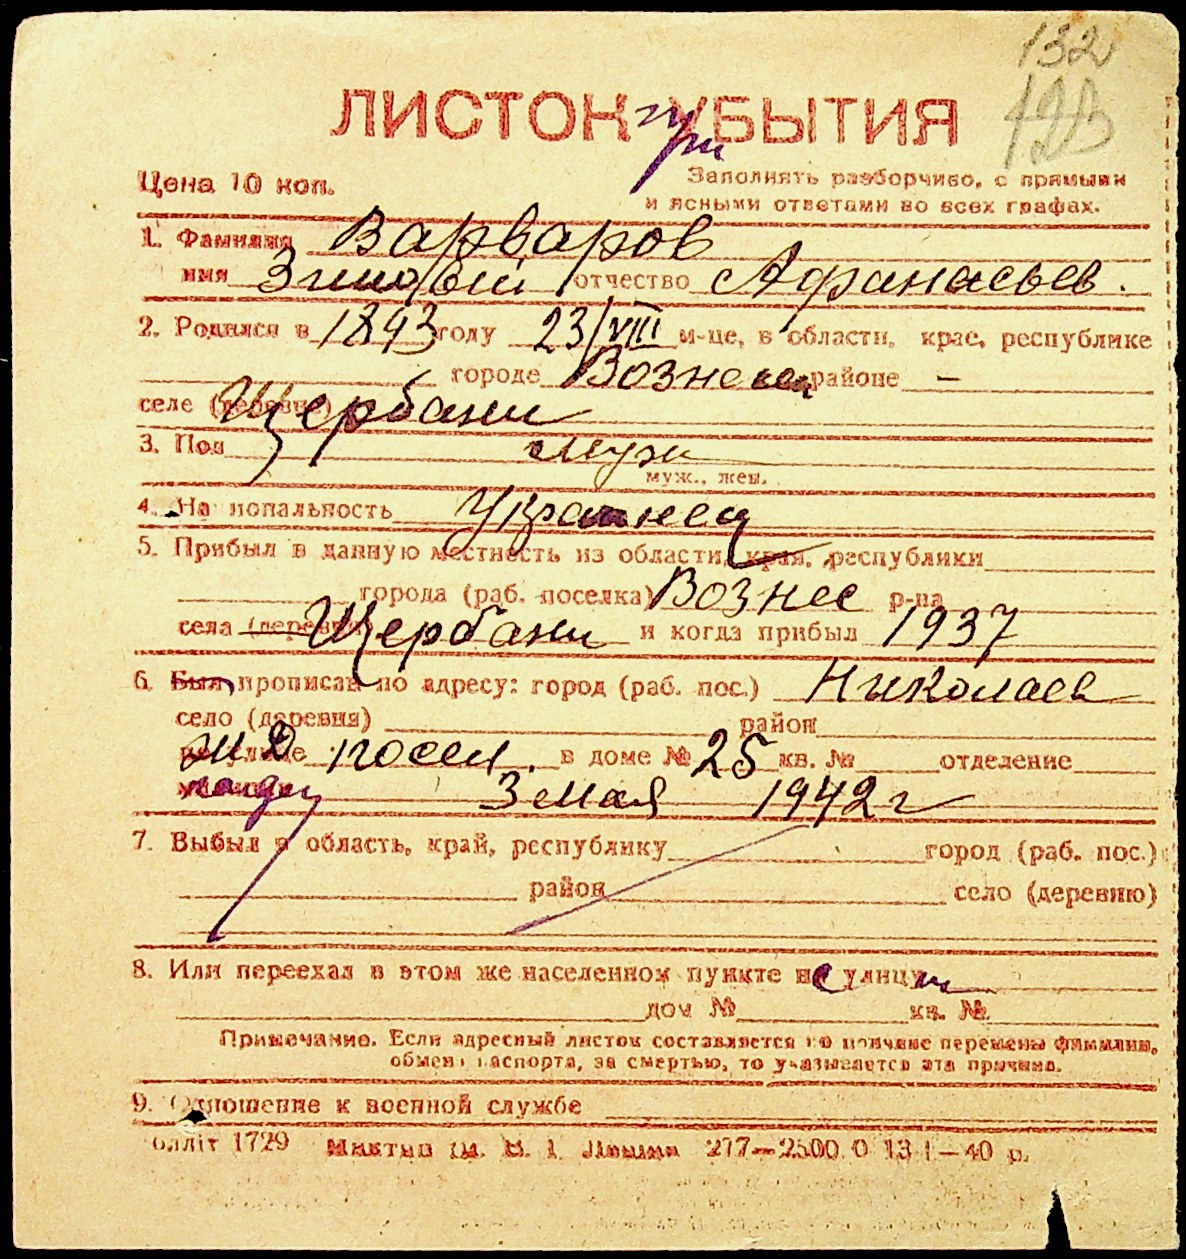 132
123
ЛИСТОК при УБЫТИЯ
Цена 10 коп.
Заполнять разборчиво, с прямыми
и ясными ответами во всех графах.
1. Фамилия Варваров
имя Зиновій отчество Афанасьев.
2. Родился в 1893 году 23/VIII м-це, в области, крае, республике
городе Вознесен районе —
селе (деревне) Щербани
3. Пол муж
муж., жен.
4. На иональность Украинец
5. Прибыл в данную местность из области, края, республики
города (раб. поселка) Вознес р-на
села (деревни) Щербани и когда прибыл 1937
6. Был прописан по адресу: город (раб. пос.) Николаев
село (деревня) район
на улице ЖД посел. в доме № 25 кв. № отделение
3 мая 1942 г
7. Выбыл в область, край, республику город (раб. пос.)
район село (деревню)
8. Или переехал в этом же населенном пункте на улицу
дом № кв. №
Примечание. Если адресный листок составляется по причине перемены фамилии,
обмена паспорта, за смертью, то указывается эта причина.
9. Отношение к военной службе
облліт 1729 277—2500 0 13 I—40 р.